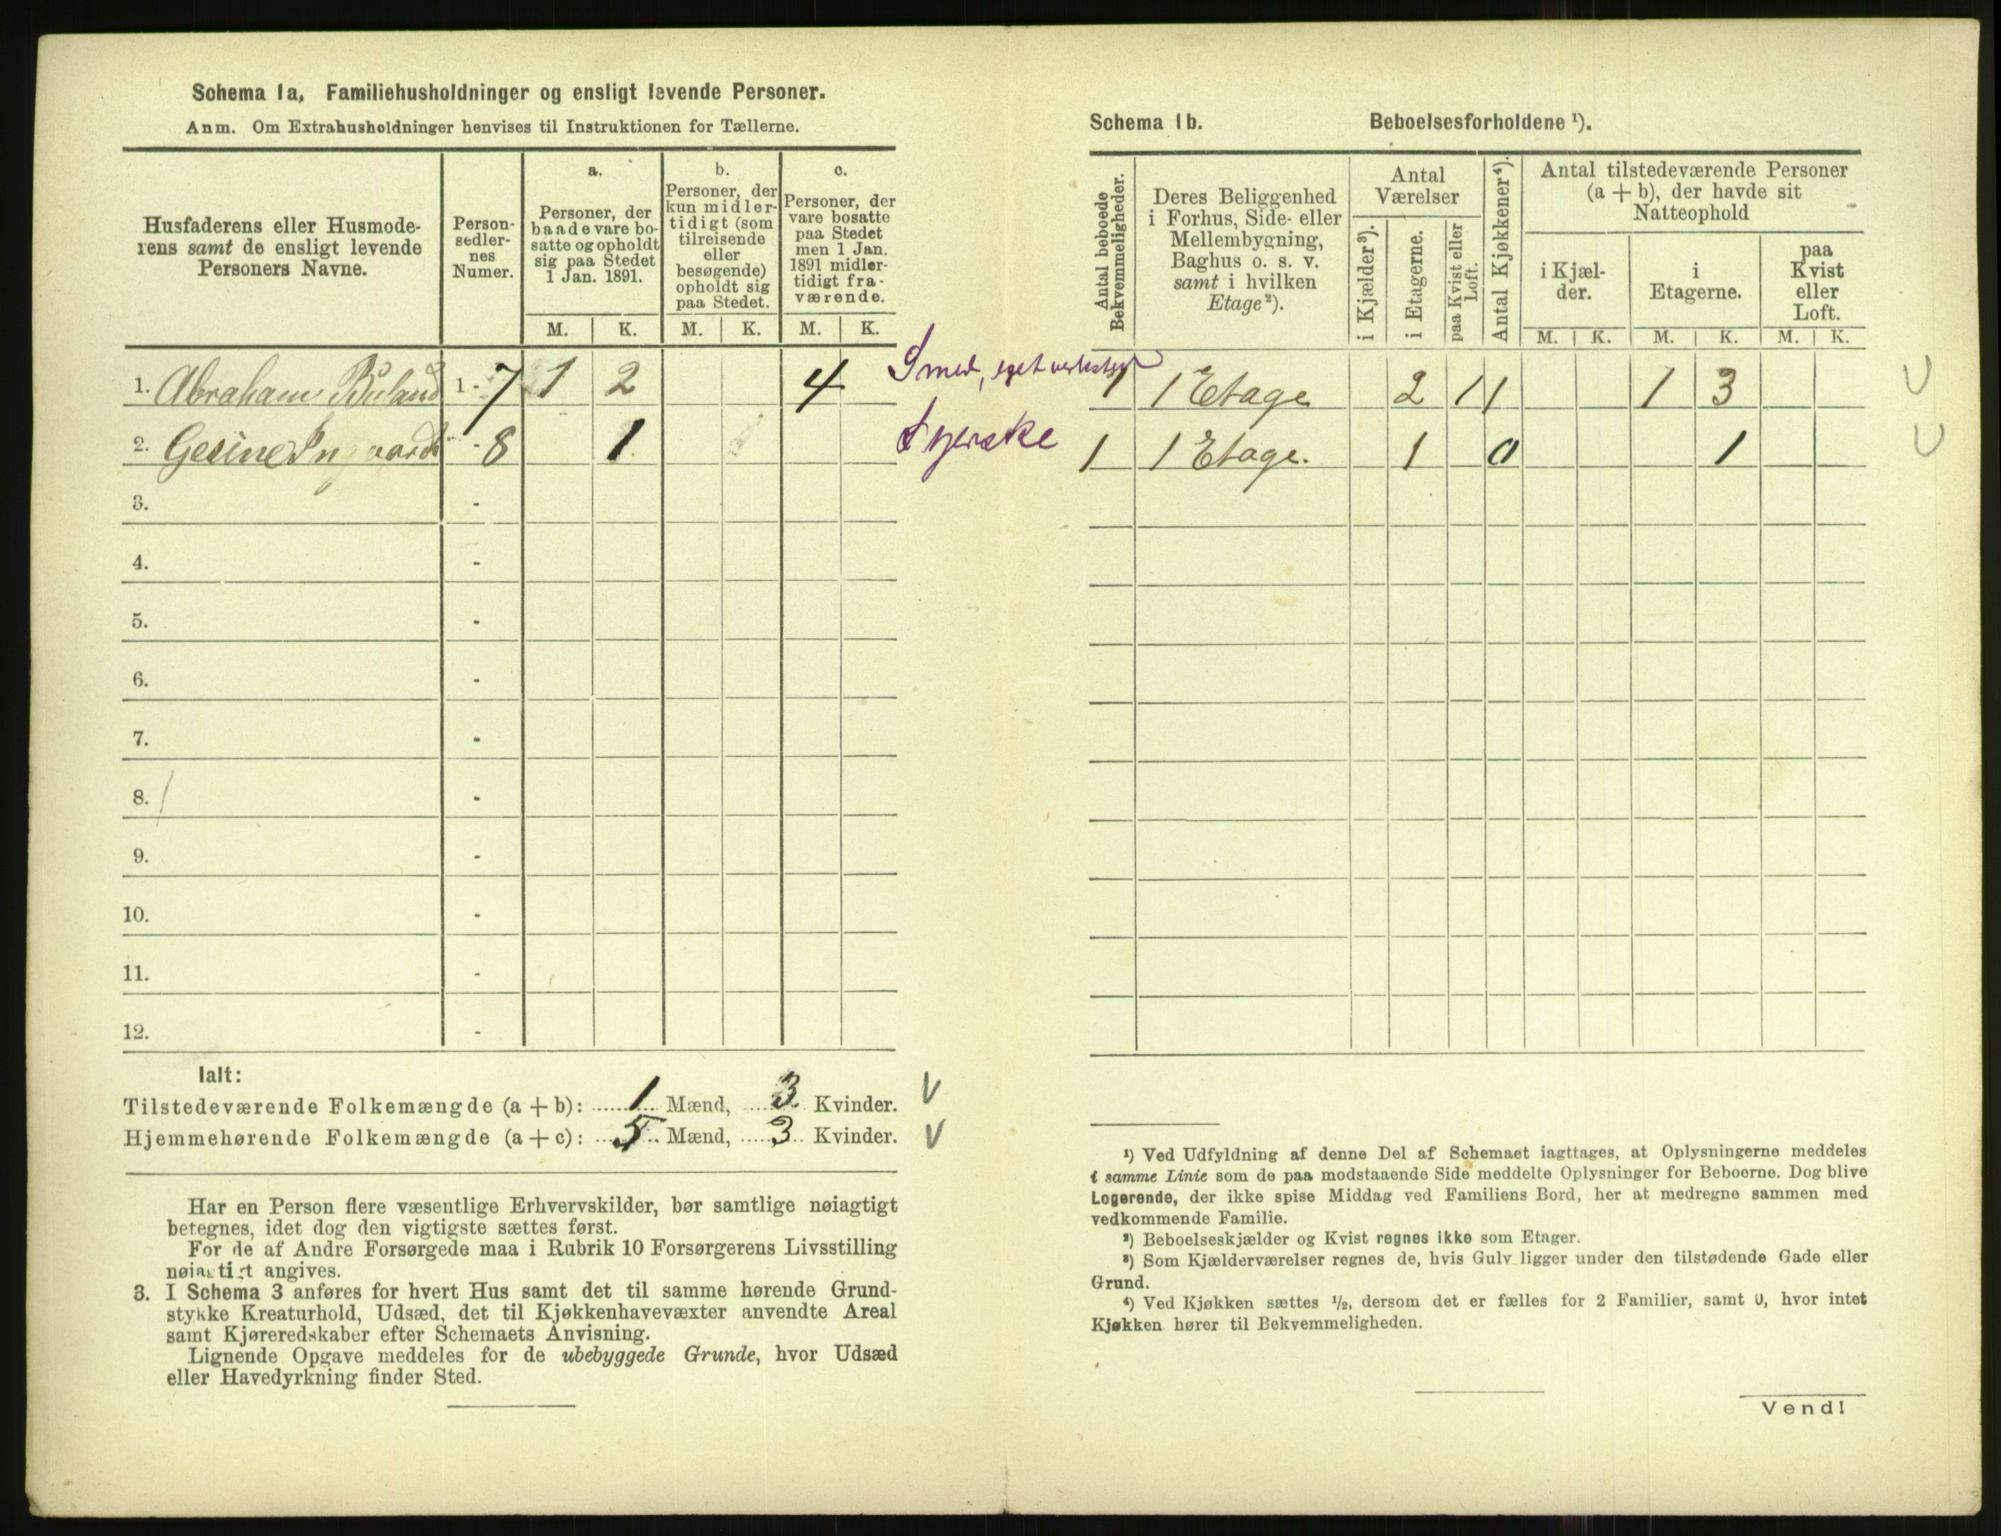 Schema 1a, Familiehusholdninger og ensligt levende Personer.
Anm. Om Extrahusholdninger henvises til Instruktionen for Tællerne.
Husfaderens eller Husmode-
rens samt de ensligt levende
Personers Navne.
Person-
sedler-
nes
Numer.
a.
Personer, der
baade vare bo-
satte og opholdt
sig paa Stedet
1 Jan. 1891.
b.
Personer, der
kun midler-
tidigt (som
tilreisende
eller
besøgende)
opholdt sig
paa Stedet.
c.
Personer, der
vare bosatte
paa Stedet
men 1 Jan.
1891 midler-
tidigt fra-
værende.
M. K. M. K. M. K.
1. Abraham Buland 1 - 7 1 2 4 Smed, eget verksted
2. Gesine - 8 1 Syerske
3. -
4. -
5. -
6. -
7. -
8. -
9. -
10. -
11. -
12. -
Ialt:
Tilstedeværende Folkemængde (a + b): 1 Mænd, 3 Kvinder.
Hjemmehørende Folkemængde (a + c): 5 Mænd, 3 Kvinder.
Har en Person flere væsentlige Erhvervskilder, bør samtlige nøiagtigt
betegnes, idet dog den vigtigste sættes først.
For de af Andre Forsørgede maa i Rubrik 10 Forsørgerens Livsstilling
nøiagtigt angives.
3. I Schema 3 anføres for hvert Hus samt det til samme hørende Grund-
stykke Kreaturhold, Udsæd, det til Kjøkkenhavevæxter anvendte Areal
samt Kjøreredskaber efter Schemaets Anvisning.
Lignende Opgave meddeles for de ubebyggede Grunde, hvor Udsæd
eller Havedyrkning finder Sted.
Schema 1b. Beboelsesforholdene ¹).
Antal beboede
Bekvemmeligheder.
Deres Beliggenhed
i Forhus, Side- eller
Mellembygning,
Baghus o. s. v.
samt i hvilken
Etage²).
Antal
Værelser
i Kjælder³).
i Etagerne.
paa Kvist eller
Loft.
Antal Kjøkkener⁴).
Antal tilstedeværende Personer
(a + b), der havde sit
Natteophold
i Kjæl-
der.
i
Etagerne.
paa
Kvist
eller
Loft.
M. K. M. K. M. K.
1 1 Etage 2 1 1 1 3
1 1 Etage. 1 0 1
¹) Ved Udfyldning af denne Del af Schemaet iagttages, at Oplysningerne meddeles
i samme Linie som de paa modstaaende Side meddelte Oplysninger for Beboerne. Dog blive
Logerende, der ikke spise Middag ved Familiens Bord, her at medregne sammen med
vedkommende Familie.
²) Beboelseskjælder og Kvist regnes ikke som Etager.
³) Som Kjælderværelser regnes de, hvis Gulv ligger under den tilstødende Gade eller
Grund.
⁴) Ved Kjøkken sættes ½, dersom det er fælles for 2 Familier, samt 0, hvor intet
Kjøkken hører til Bekvemmeligheden.
Vend!